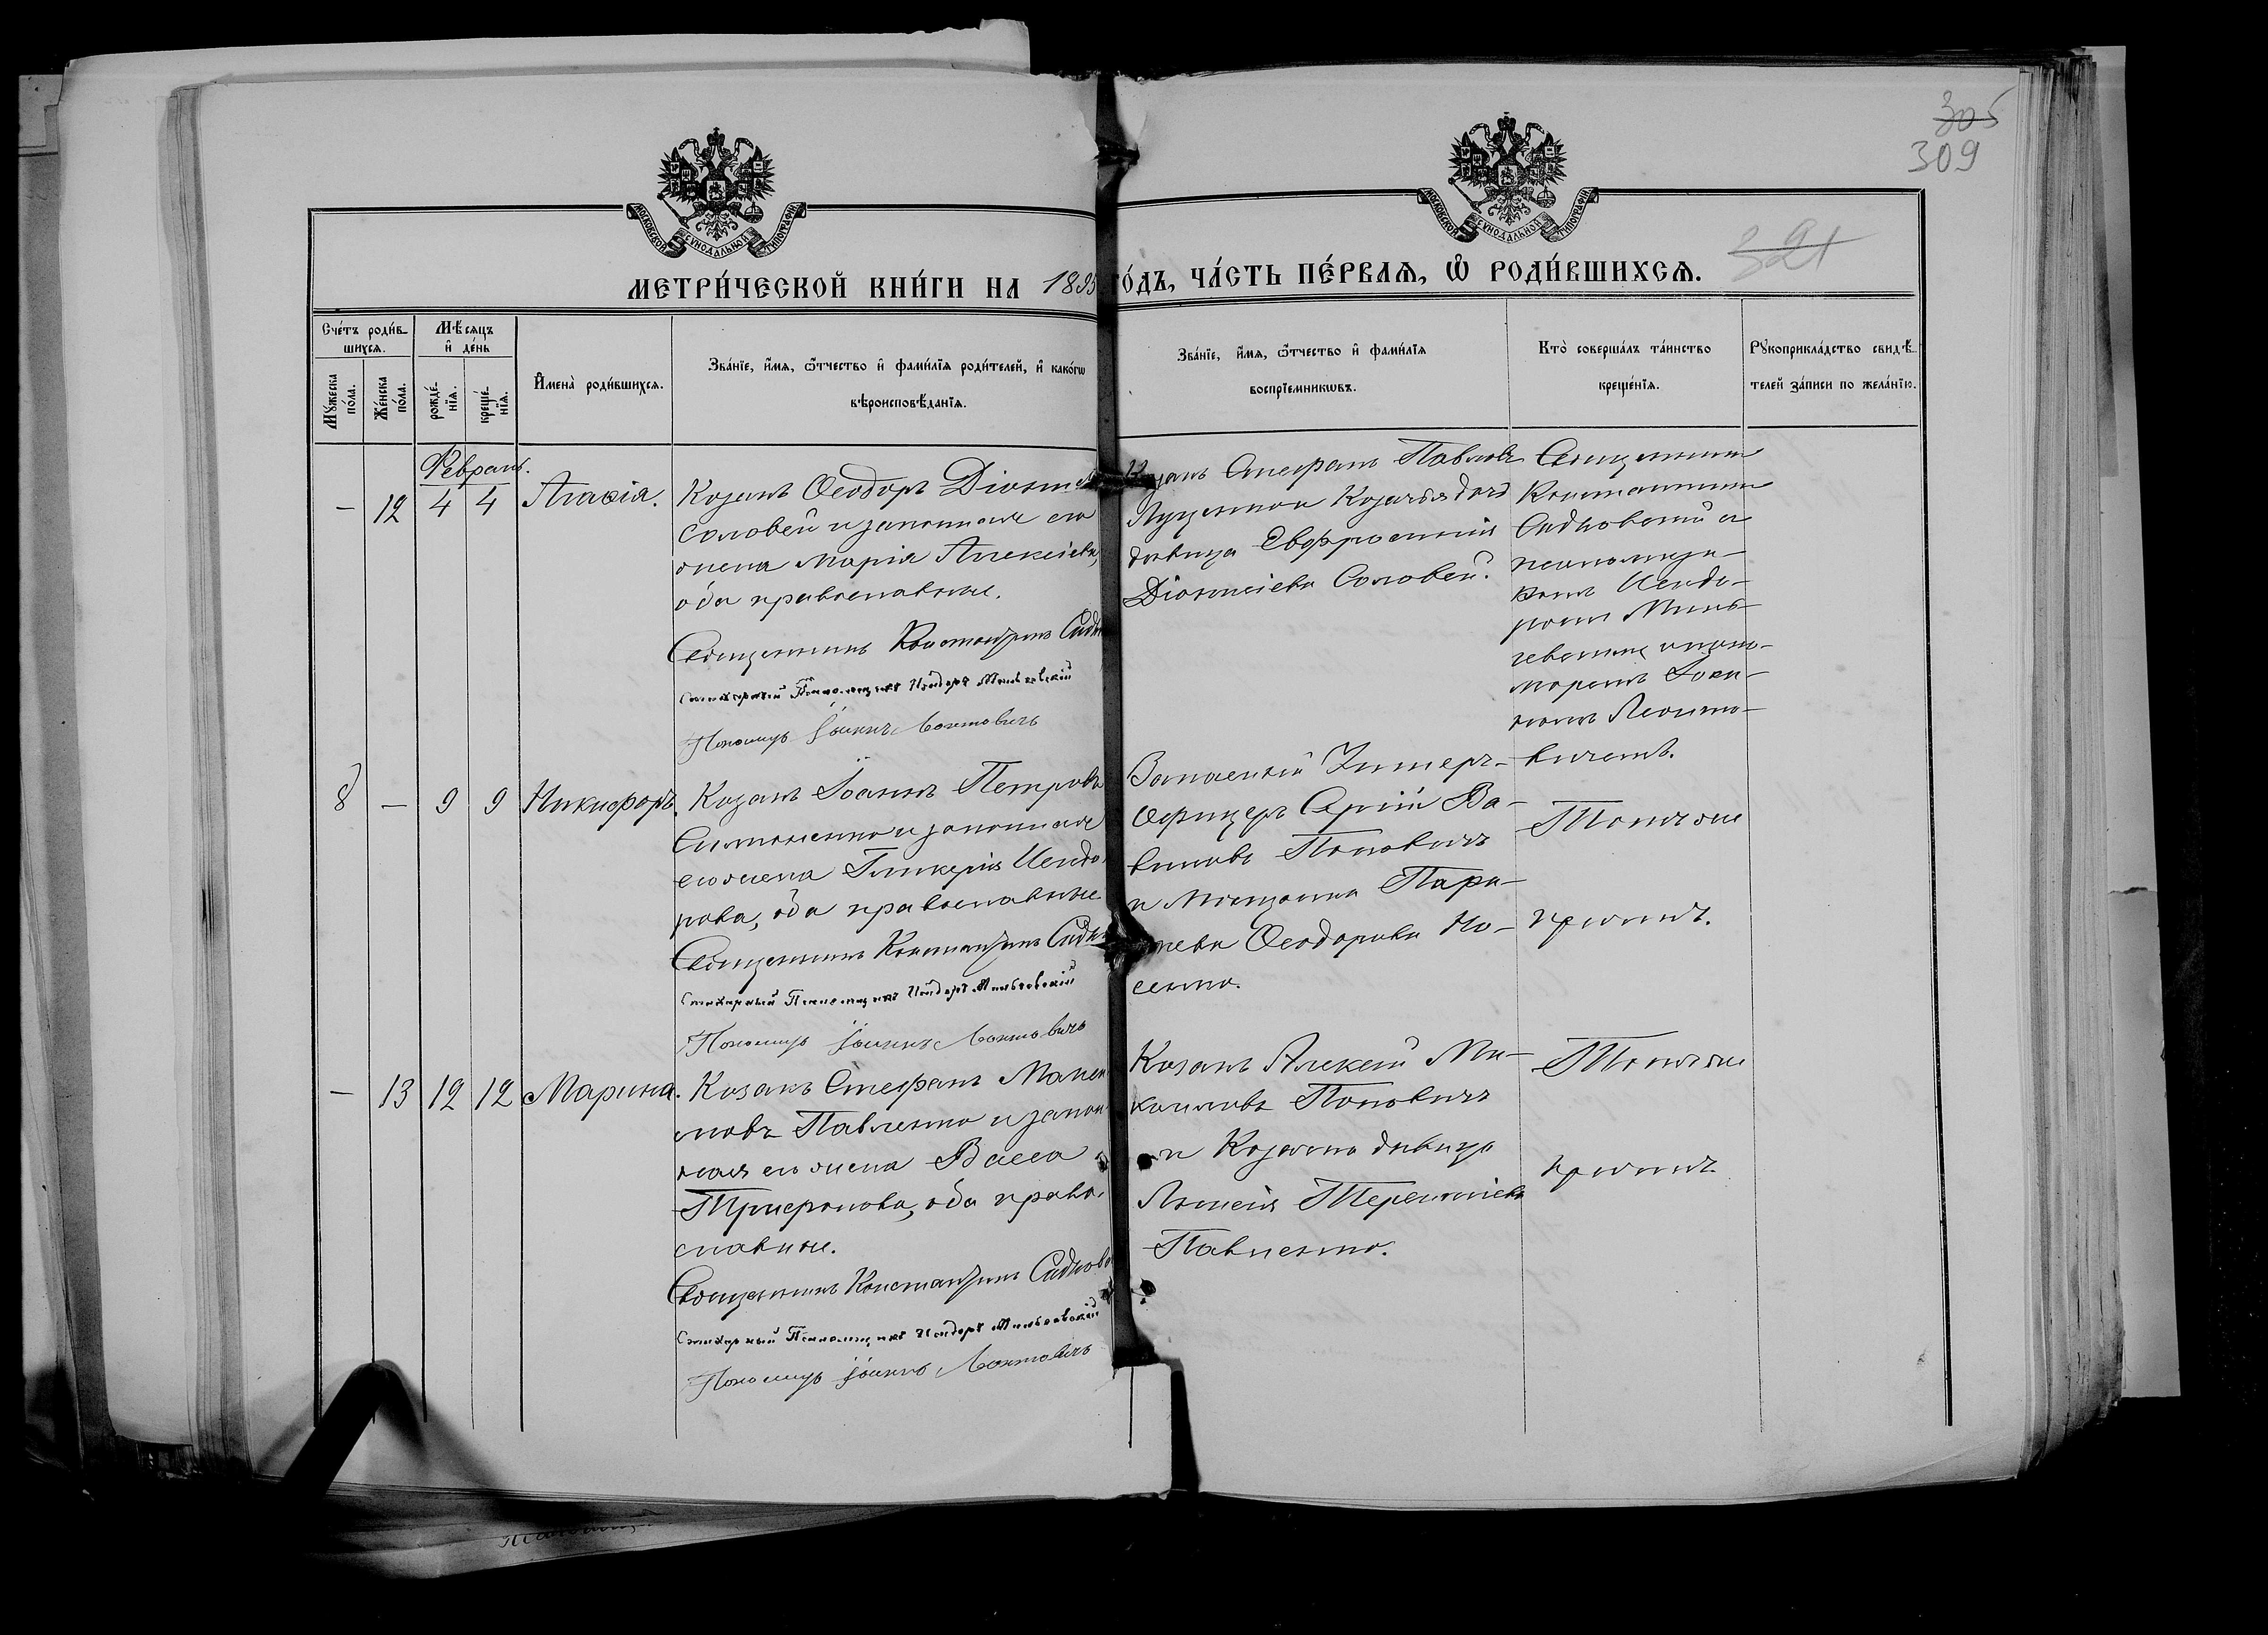 305
309
МОСКОВСКОЙ СѴНОДАЛЬНОЙ ТИПОГРАФІИ
МОСКОВСКОЙ СѴНОДАЛЬНОЙ ТИПОГРАФІИ
321
МЕТРИ́ЧЕСКОЙ КНИ́ГИ НА 1895 ГО́ДЪ, ЧА́СТЬ ПЕ́РВАѦ, Ѡ҆ РОДИ́ВШИХСѦ.
Сче́тъ роди́в-
шихся.
Мѣ́сяцъ
и҆ де́нь
Мꙋ́жеска
по́ла.
Же́нска
по́ла.
рожде́-
нїѧ.
креще́-
нїѧ.
И҆мена̀ роди́вшихсѧ.
Зва́нїе, и҆́мѧ, ѻ҆́тчество и҆ фами́лїѧ роди́телей, и҆ како́гѡ
вѣроисповѣ́данїѧ.
Зва́нїе, и҆́мѧ, ѻ҆́тчество и҆ фами́лїѧ
воспрїе́мникѡвъ.
Кто̀ соверша́лъ та́инство
креще́нїѧ.
Рꙋкоприкла́дство свидѣ́-
телей за́писи по жела́нїю.
Февраль.
— 12 4 4 Агаѳія.
Козакъ Ѳеодоръ Діони
Соловей и законная его
жена Марія Алексіева,
оба православные.
Священникъ Константинъ Сидн
Стихарный Псаломщикъ Исидоръ Миньковскій
Пономарь Іоаннъ Леонтовичъ
Козакъ Стефанъ Павловъ
Луценко и Козачья дочь
дѣвица Евфросинія
Діонисіева Соловей.
Священникъ
Константинъ
Сидновскій съ
псаломщи-
комъ Исидо-
ромъ Минь-
ковскимъ и поно-
маремъ Іоан-
номъ Леонто-
вичемъ.
8 — 9 9 Никифоръ.
Козакъ Іоаннъ Петровъ
Симоненко и законная
его жена Гликерія Исидо-
рова, оба православные
Священникъ Константинъ Сидн
Стихарный Псаломщикъ Исидоръ Миньковскій
Пономарь Іоаннъ Леонтовичъ
Запасный Унтеръ-
Офицеръ Сергій Ва-
виловъ Поповичъ
и Мѣщанка Пара-
скева Ѳеодорова Но-
сенко.
Тотъ же
причтъ.
— 13 12 12 Марина.
Козакъ Стефанъ
мовъ Павленко и закон-
ная его жена Васса
Трифонова, оба право-
славные.
Священникъ Константинъ Сиднов
Стихарный Псаломщикъ Исидоръ Миньковскій
Пономарь Іоаннъ Леонтовичъ
Козакъ Алексій Ми-
хаиловъ Поповичъ
и Козачка дѣвица
Терентіева
Павленко.
Тотъ же
причтъ.